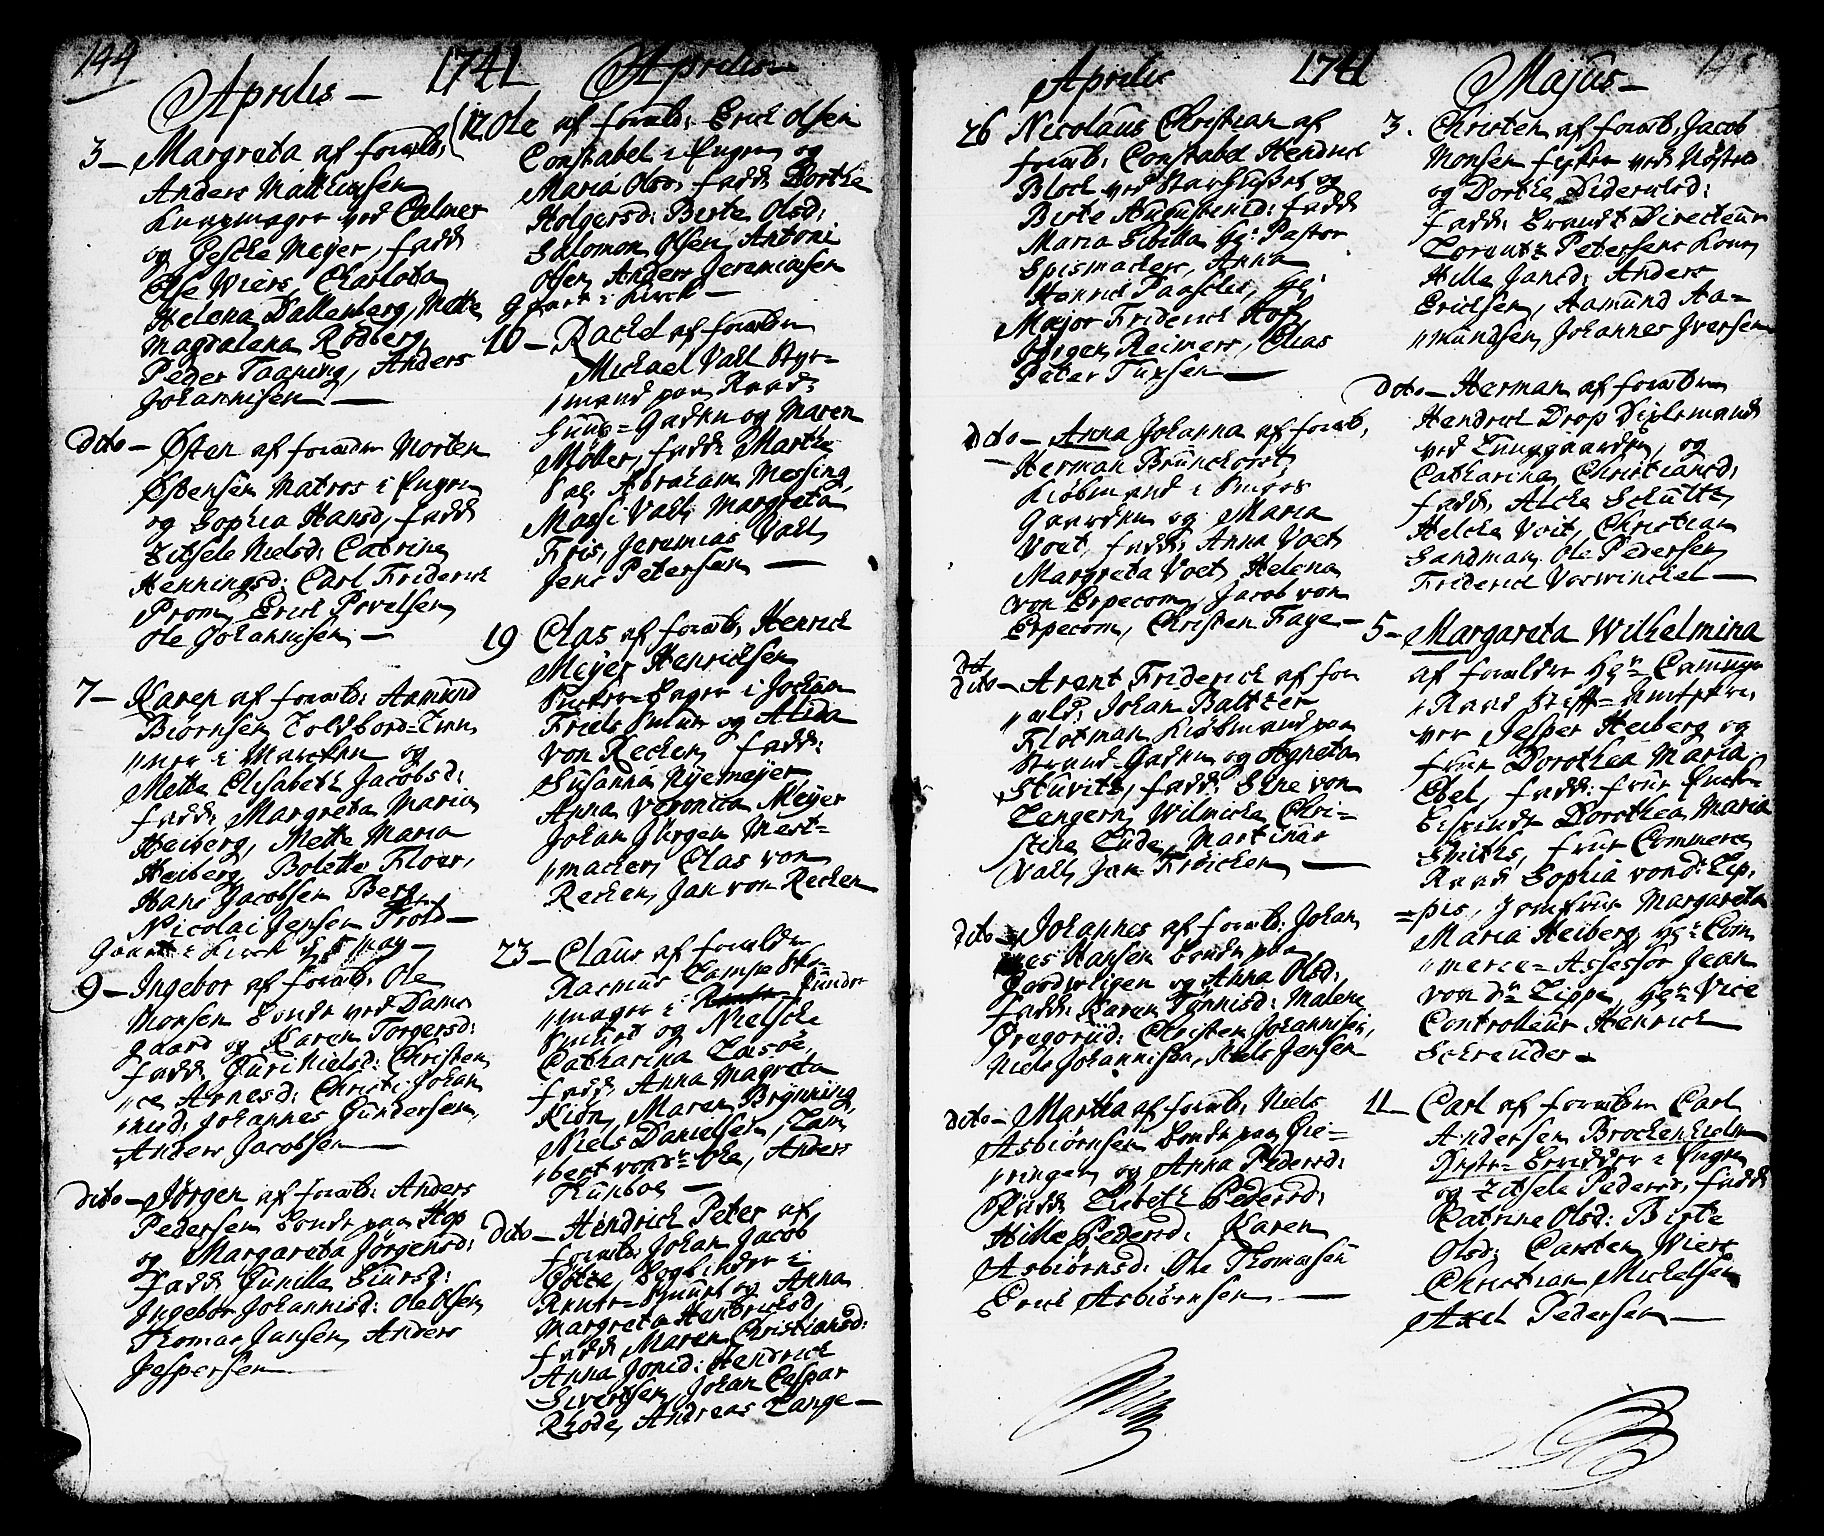 144
Aprilis —
3 — Margreta af foræld:
Anders Mathiasen
Knapmager ved Calmer
og Jesche Meyer, fadd:
Else Wiers, Charlota
Helena Dallenberg, Mette
Magdalena Rodberg,
Peder Taaning, Anders
Johannisen —
dito — Østen af forældr Morten
Østensen Matros i Engen
og Sophia Hansd, fadd:
Zitsele Nielsd: Catrine
Henningsd: Carl Friderich
Prom, Erick Povelsen,
Ole Johannisen —
7 — Karen af foræld: Aamund
Biørnsen Toldbod=
i Marcken og
Mette Elisabeth Jacobsd:
fadd: Margreta Maria
Heiberg, Mette Maria
Heiberg, Bolette Floer,
Hans Jacobsen Berg,
Nicolai Jensen Frold —
Gaaet i Kirck d 5 may —
9 — Ingebor af foræld: Ole
Monsen bonde ved Dams
gaard og Karen Torgersd:
fadd: Guri Nielsd: Christen
Arnesd: Christi Johan
nisd, Johannes Gundersen,
Anders Jacobsen —
dito — Jørgen af foræld: Anders
Pedersen bonde paa Hop
og Margareta Jørgensd:
fadd: Gunilla Siursd:
Ingebor Johannisd: Ole Olsen,
Thomas Jansen, Anders
Jespersen —
1741 Aprilis —
12 Ole af foræld: Erick Olsen
Constabel i Engen og
Maria Olsd, fadd: Dorthe
Holgersd: Birte Olsd:
Salomon Olsen, Antoni
Olsen, Anders Jeremiasen
gaaet i Kirck —
16 — Rachel af forældrn
Michael Vahl Styr=
mand paa Raad:
huus=Gaden og Maren
Møller, fadd: Marthe
Sal. Abraham Messing,
Massi Vahl, Margreta
Fris, Jeremias Vahl,
Jens Petersen —
19 Clas af foræld: Henrich
Meyer Henrichsen
bager i Jochum
Friels smuer og Alida
von Recken, fadd:
Susanna Nyemeyer
Anna Veronica Meyer
Johan Jürgen Mest=
macker, Clas von
Recken, Jan von Recken
23 — Claus af forældrn
Rasmus Lampe Sko=
mager i Kundre
smuet og Nielsche
Catharina Losoe,
fadd: Anna Magreta
Kion, Maren Brynning,
Niels Danielsen, Lam
bert vonde Oha, Anders
Kunboe —
dito — Hendrich Peter af
foræld: Johan Jacob
Götze, Bogbinder i
smuet og Anna
Margreta Hendrichsd,
fadd: Maren Christiansd:
Anna Jonsd: Hendrich
Sivertsen, Johan Caspar
Rhode, Andreas Lange —
Aprilis 1741
26 Nicolaus Christian af
foræld: Constabel Hendrich
Bloch ved Starhuset og
Birte Augustinsd: fadd:
Maria Sibilla Hr: Pastor
Spismachers, Anna
Henrich Paasches, Hr:
Major Friderich Hof,
Jürgen Reimers, Elias
Peter Tuxsen —
dito — Anna Johanna af foræld,
Herman Brunchorst
Kiøbmand i
Gaarden og Maria
Voet, fadd: Anna Voet
Margreta Voet, Helena
von Erpecom, Jacob von
Erpecom, Christen Faye —
dito — Arent Friderich af for
æld: Johan Baltzer
Flotman Kiøbmand paa
Strand-Gaden og Agneta
Sturitz, fadd: Stne von
Lengern, Wilmicke Chri=
stche Lude, Martinus
Vahl, Jan Fröichen —
dito — Johannes af foræld: Johan
nes Hansen bonde paa
og Anna Olsd:
fadd: Karen Tönnisd: Malene
Gregoriid: Christen Johannisen,
Niels Johannisen, Niels Jensen
dito — Martha af foræld: Niels
Asbiørnsen bonde paa Gie=
ringen og Anna Pedersd:
Fadd: Lisbeth Pedersd:
Hille Pedersd: Karen
Asbiørnsd: Ole Thomasen
Erick Asbiørnsen —
Majus —
3. Christen af foræld: Jacob
Monsen fisker ved Nøstet
og Dorthe Diderichsd:
fadd: Brandt Directeur
Lorentz Petersens Kone,
Hille Jansd: Anders
Ericksen, Aamund Aa=
mundsen, Johannes Iversen
dito — Herman af forældrn
Hendrich Drop
ved Lunggaarden, og
Catharina Christiansd:
fadd: Alche Schulte
Helche Voit, Christian
Sandman, Ole Pedersen
Friderich Voswinckel —
5 — Margareta Wilhelmina
af forældre Hgr: Cammer
Raad Stift=
ver Jesper Heiberg og
frue Dorothea Maria
Ebel, fadd: frue
Dorothea Maria
Smiths, frue Commerce
Raad Sophia vond: Lip,
=pis, Jomfrue Margareta
Maria Heiberg, Hgr: Com
merce=Assessor Jean
von dr Lippe, Hgr: Vice
Controlleur Henrich
Schreuder.
11 — Carl af forældrn Carl
Andersen Brockenhielm
i Engen
og Zitsele Pedersd, fadd:
Catrine Olsd: Birte
Olsd: Carsten Wiers
Christian Mickelsen
Axel Pedersen —